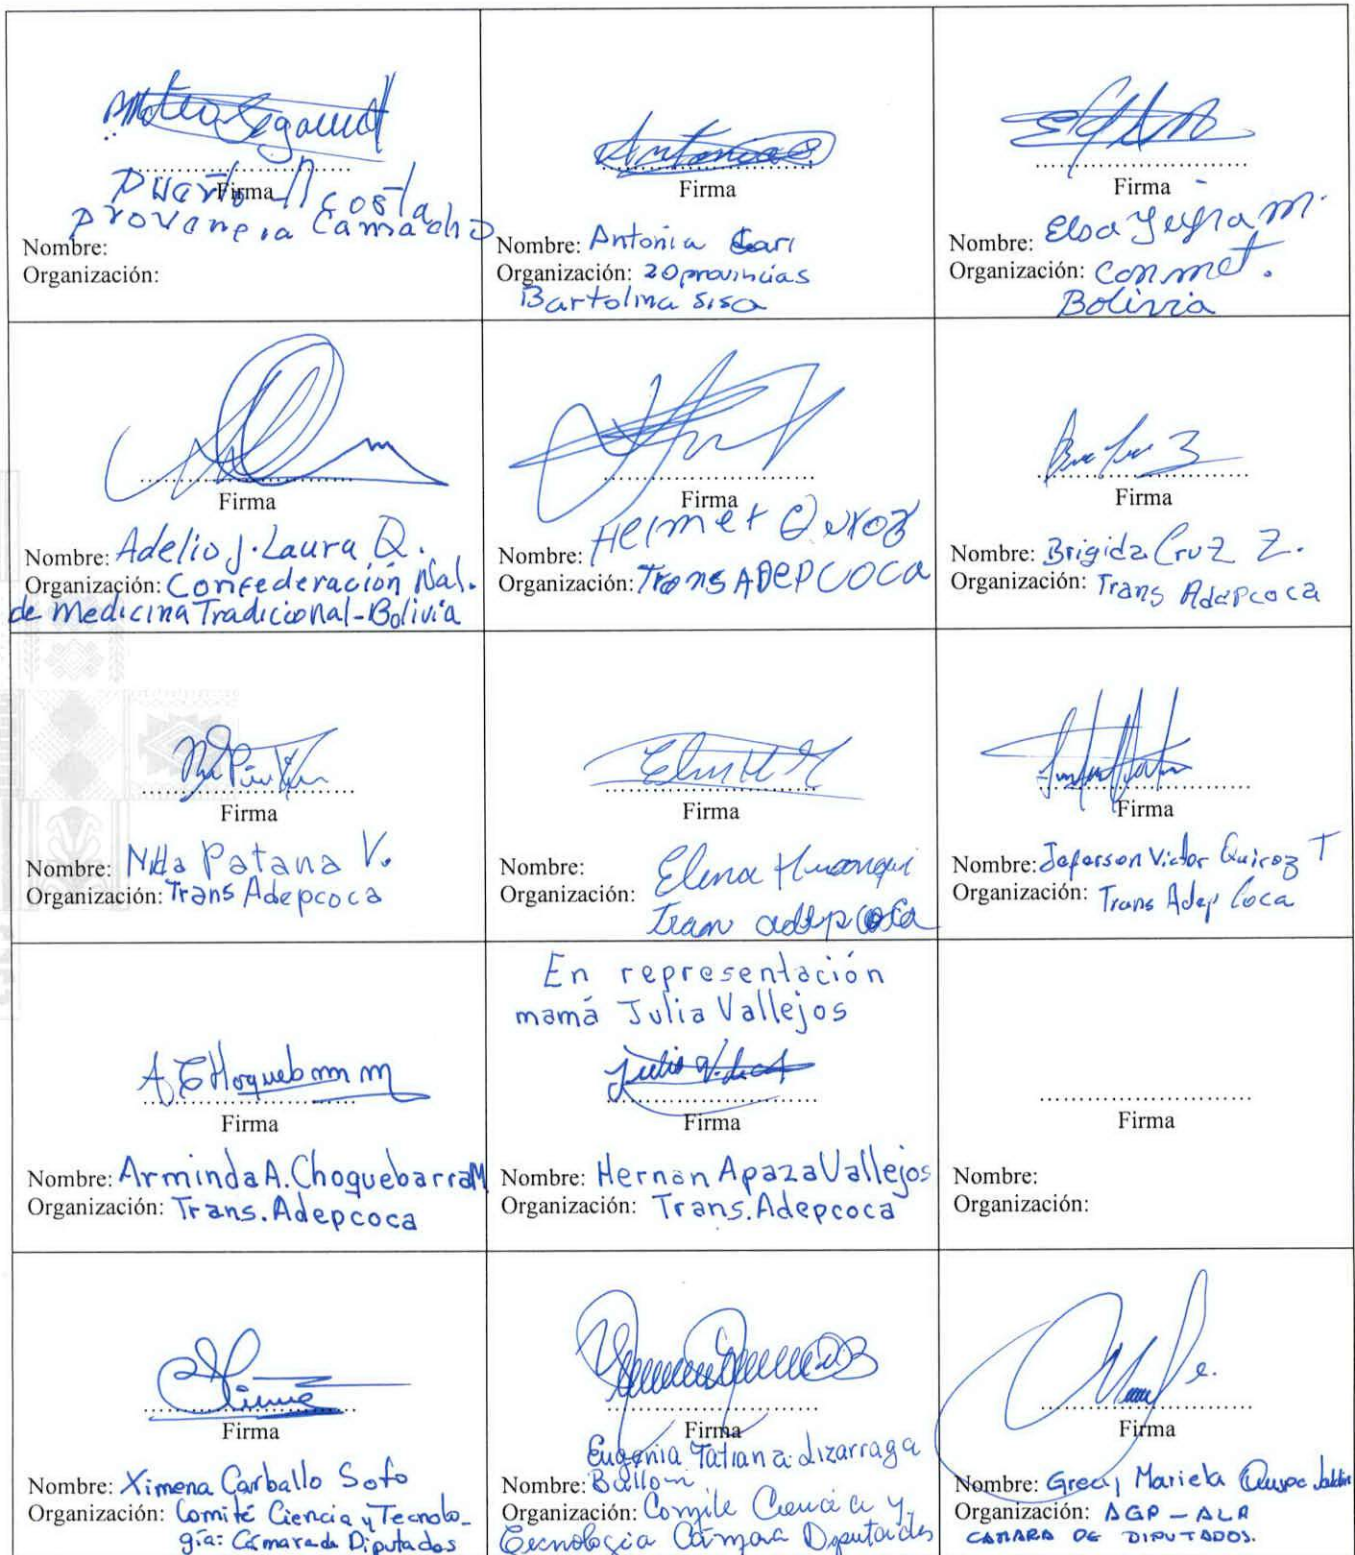 Mateo
Firma
Puerto Acosta
provancia Camacho
Nombre:
Organización:
Antonia
Firma
Nombre: Antonia Cari
Organización: 20 provincias
Bartolina Sisa
Firma
Nombre: Elsa M.
Organización: Conmet.
Bolivia
Firma
Nombre: Adelio J. Laura Q.
Organización: Confederación Nal.
de Medicina Tradicional-Bolivia
Firma
Nombre: Helmet Quroz
Organización: Trans ADEPCOCA
Firma
Nombre: Brigida Cruz Z.
Organización: Trans Adepcoca
Firma
Nombre: Nilda Patana V.
Organización: Trans Adepcoca
Firma
Nombre: Elena Huanqui
Organización: Tran adepcoca
Firma
Nombre: Jeferson Victor Quiroz T
Organización: Trans Adep Coca
A. Choquebm m
Firma
Nombre: Arminda A. Choquebarra M
Organización: Trans. Adepcoca
En representación
mamá Julia Vallejos
Julia
Firma
Nombre: Hernan Apaza Vallejos
Organización: Trans. Adepcoca
Firma
Nombre:
Organización:
Firma
Nombre: Ximena Carballo Soto
Organización: Comité Ciencia y Tecnolo-
gía: Cámara de Diputados
Firma
Eugenia Tatiana Lizarraga
Nombre: Ballon
Organización: Comite Ciencia y
Tecnologia Cámara Diputados
Firma
Nombre: Grecy Mariela Quispe
Organización: AGP - ALP
CAMARA DE DIPUTADOS.